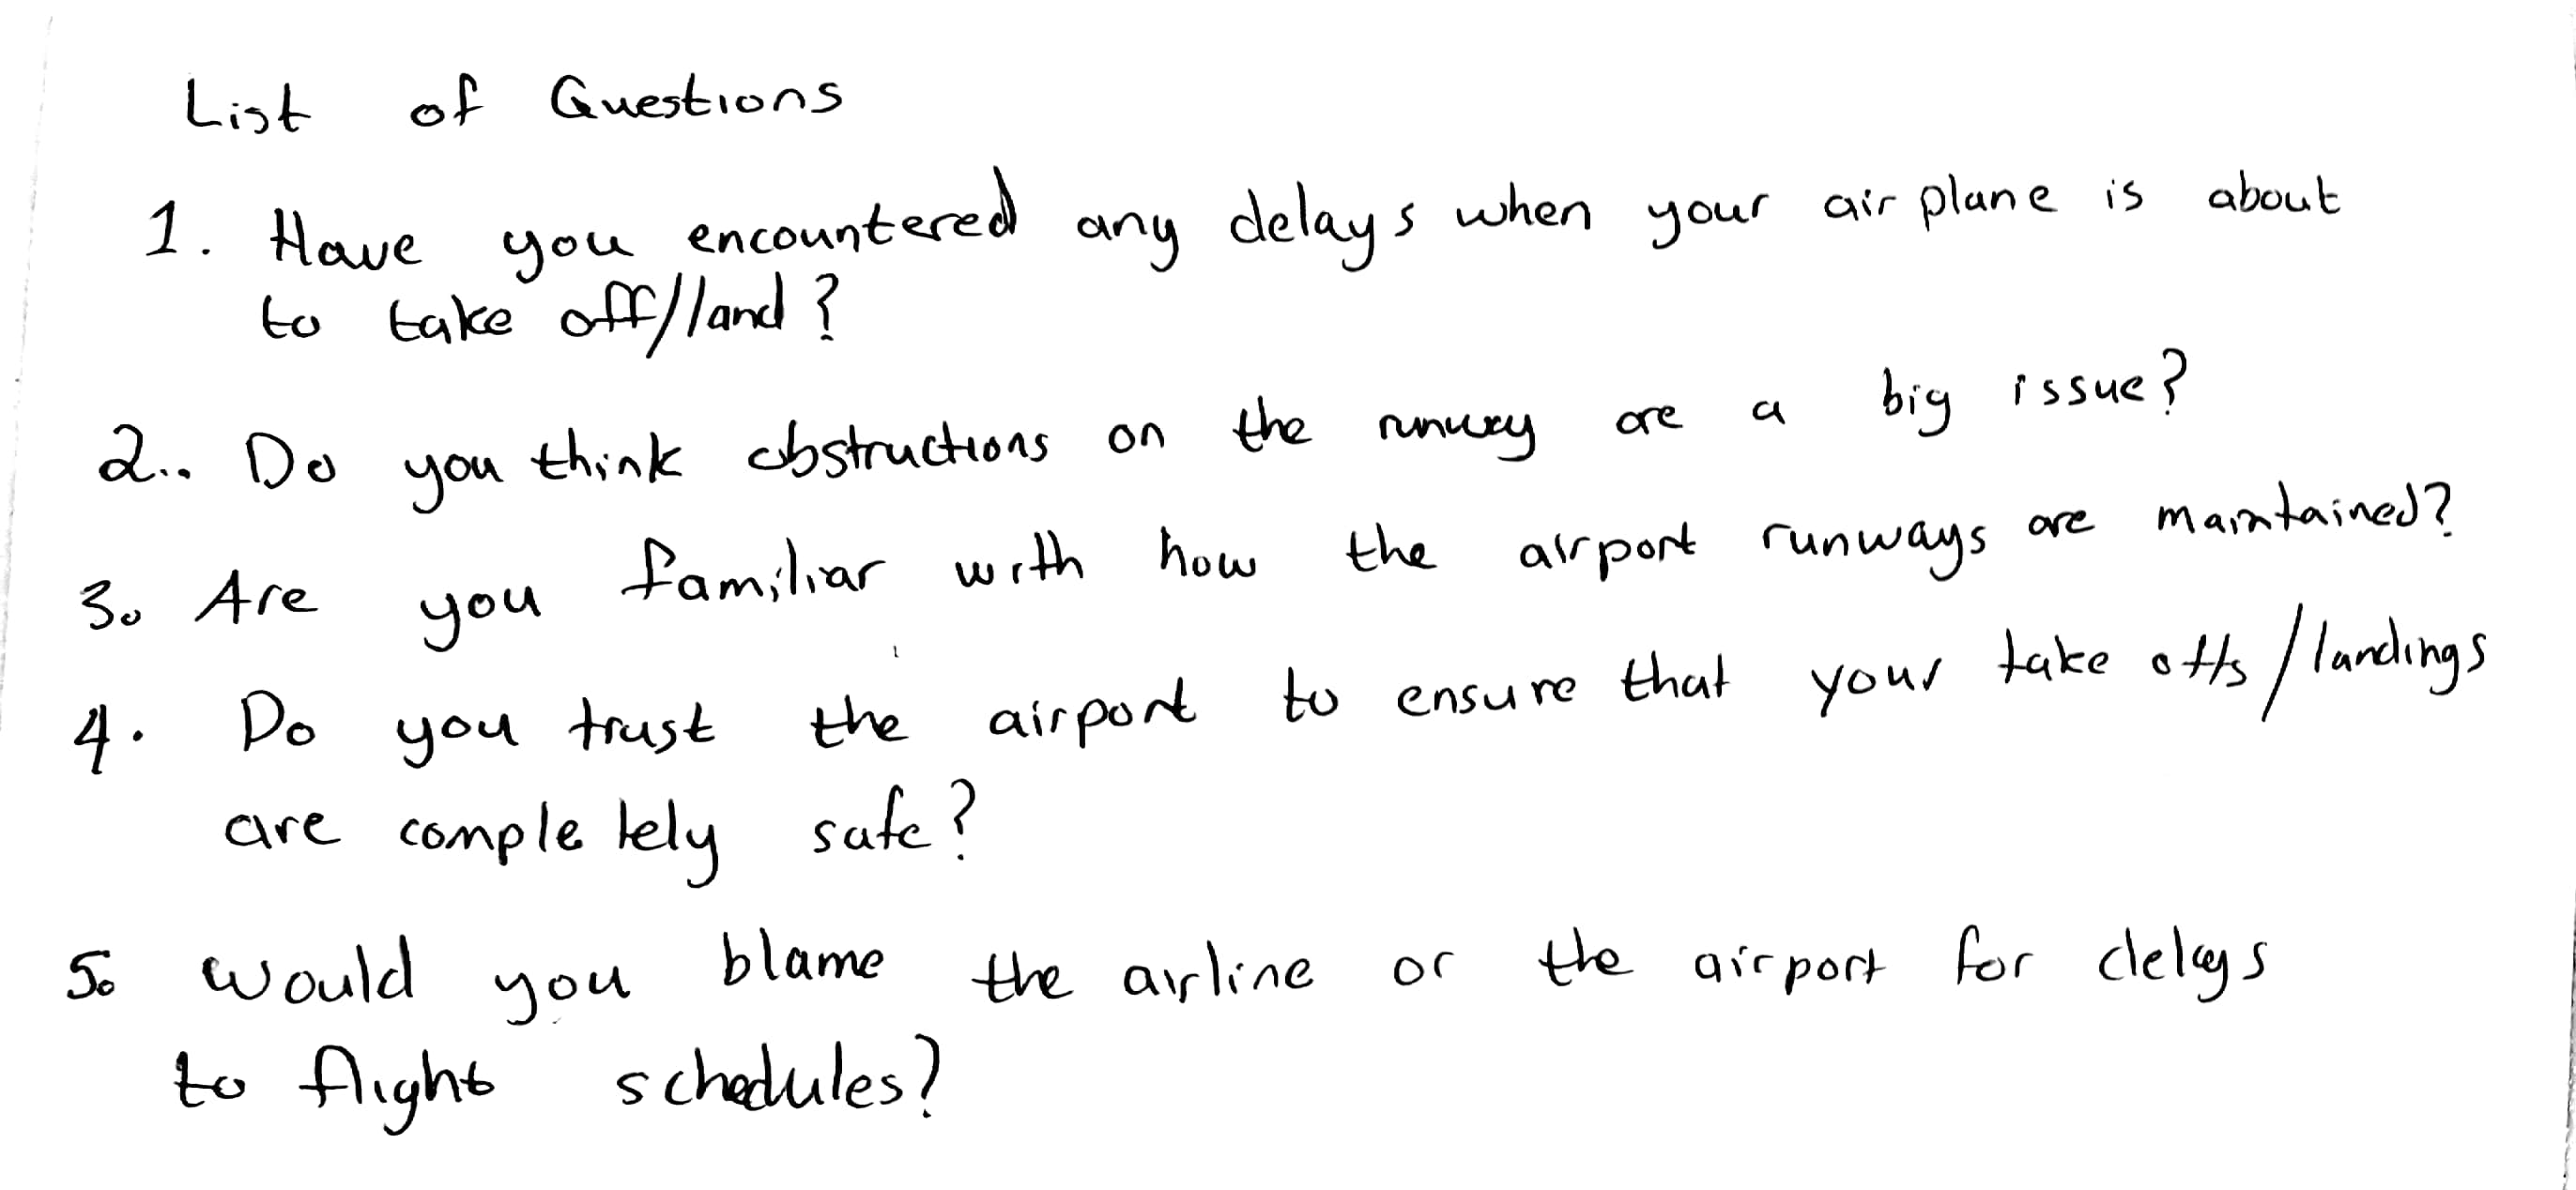 List of Questions
1. Have you encountered any delays when your airplane is about
to take off/land?
2.. Do you think obstructions on the runway are a big issue?
3. Are you familiar with how the airport runways are maintained?
4. Do you trust the airport to ensure that your take offs/landings
are completely safe?
5. Would you blame the airline or the airport for delays
to flight schedules?